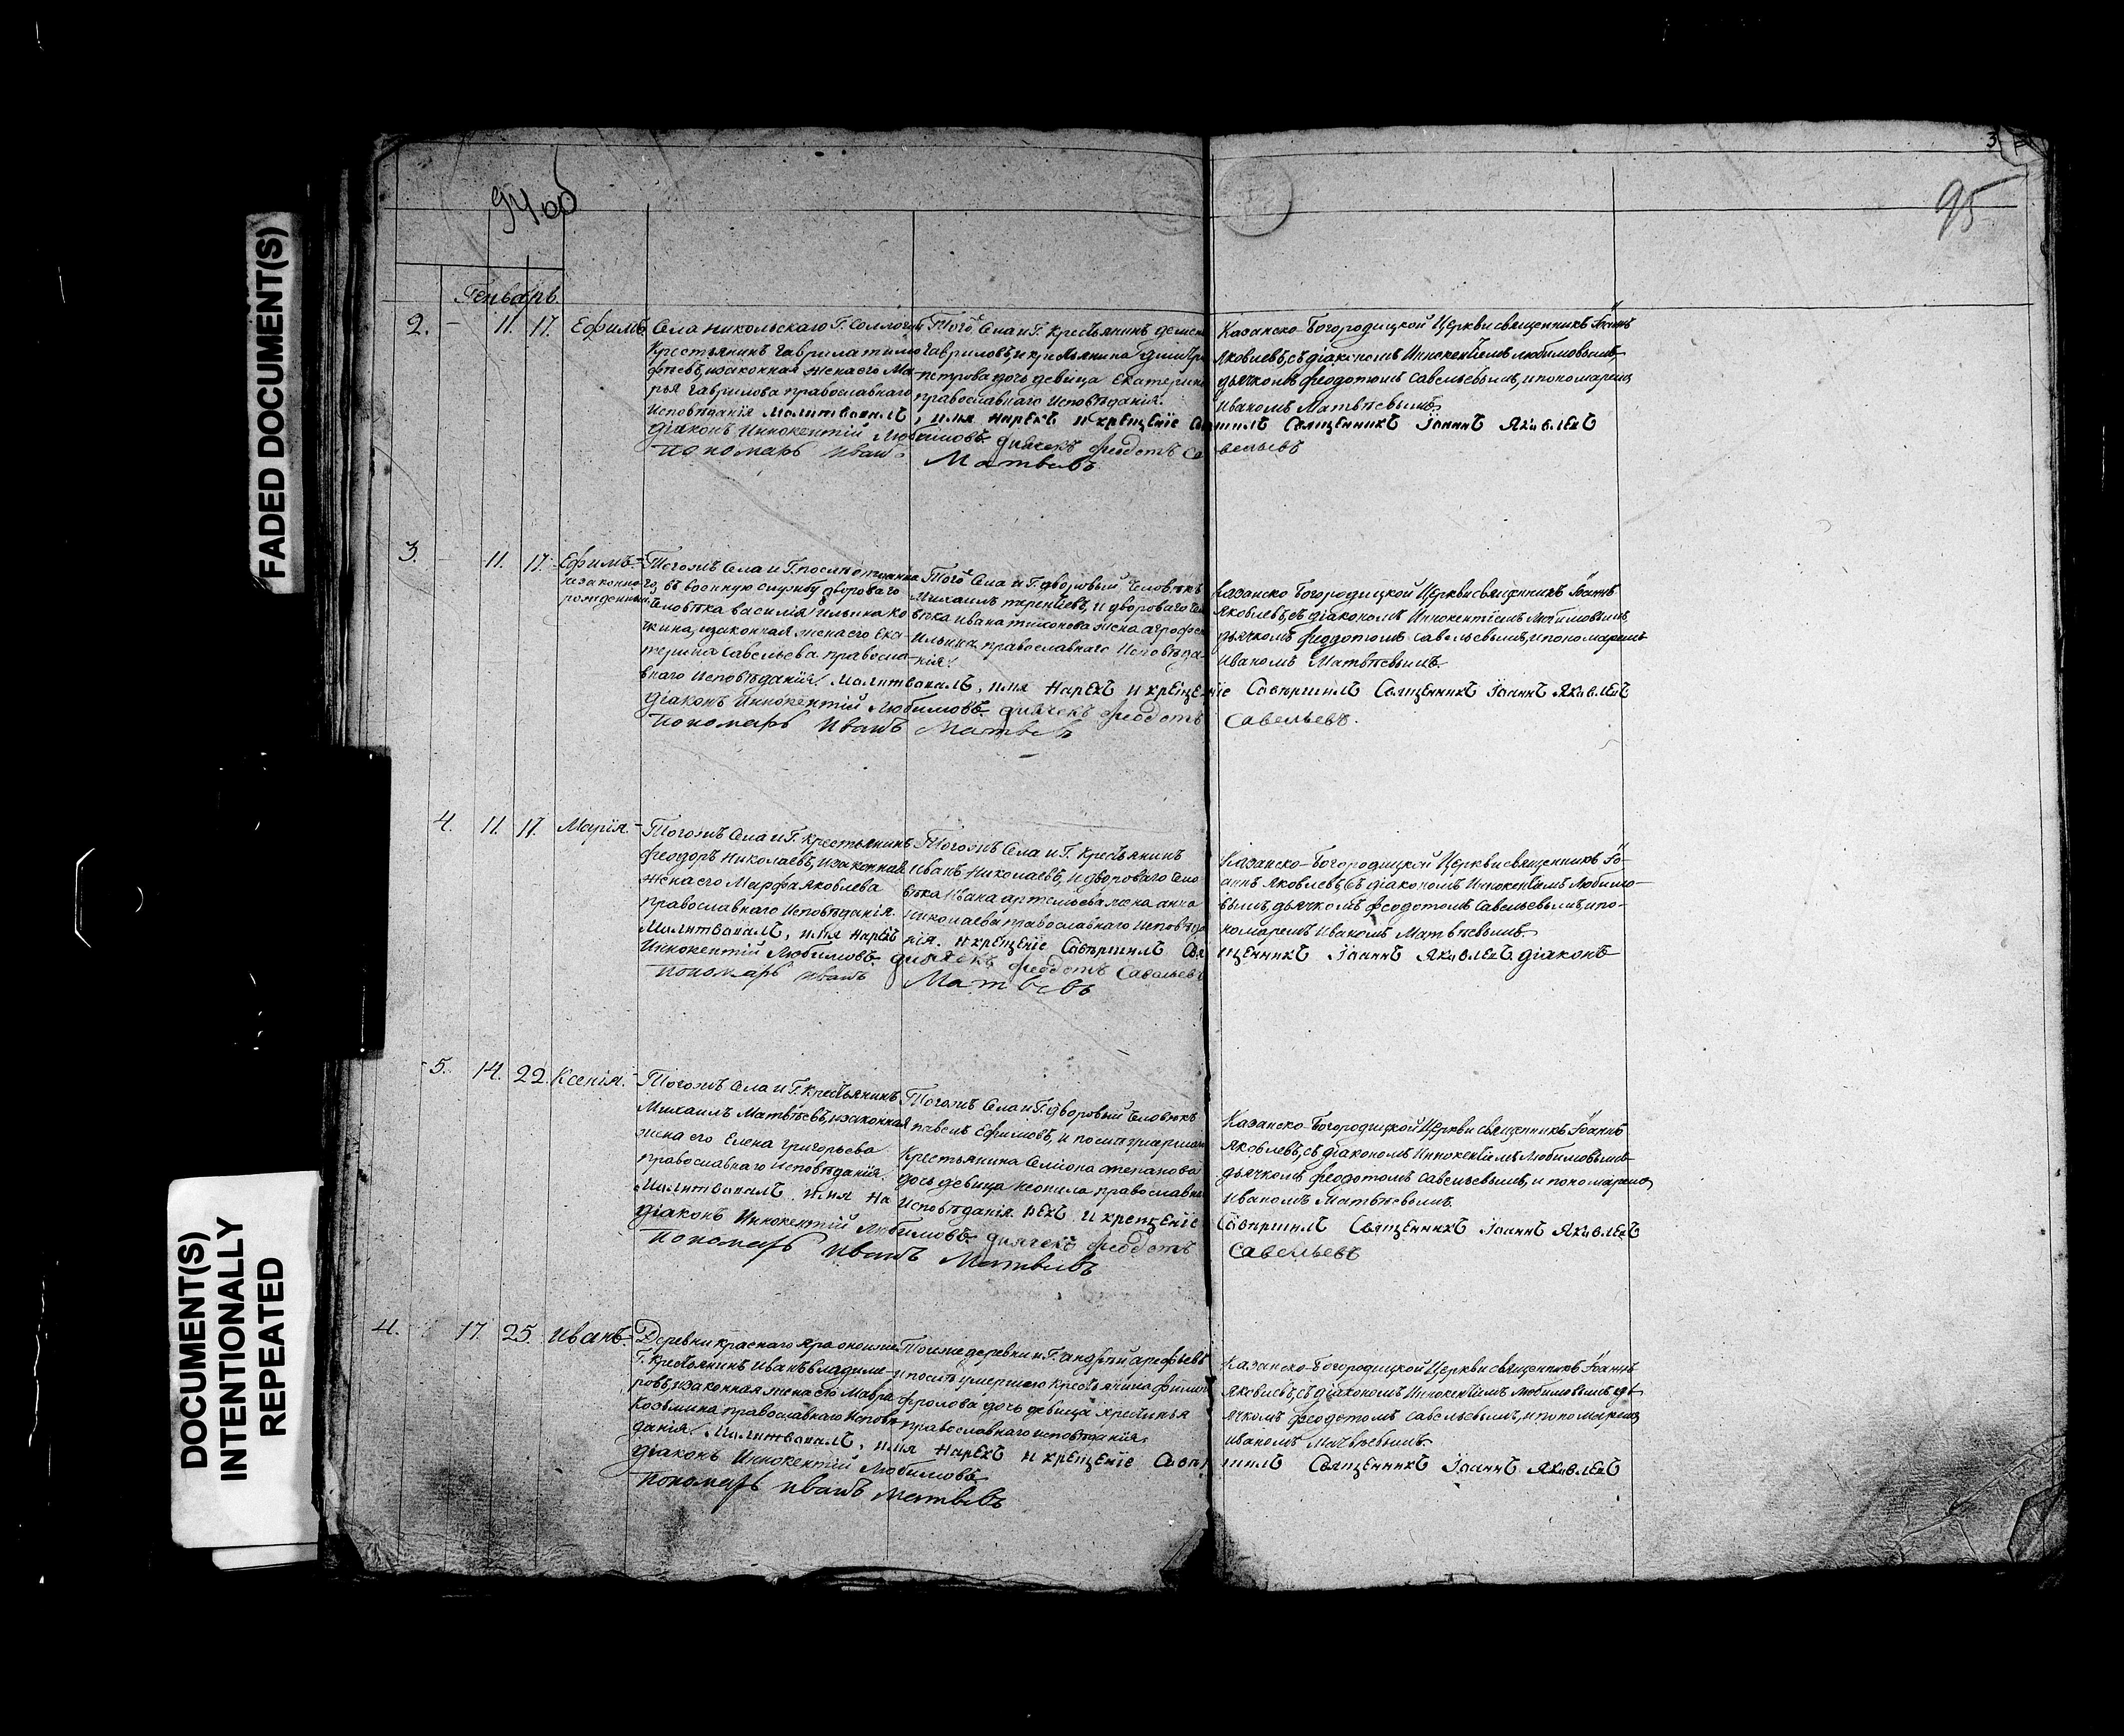 FADED DOCUMENT(S)
DOCUMENT(S)
INTENTIONALLY
REPEATED
94 об
3
95
Генварь
2. – 11. 17. Ефимъ
Села Никольскаго Г. Сологуба
Крестьянинъ Гаврила Тимо-
фѣевъ, изаконная жена его Ма-
рья Гаврилова православнаго
Исповѣданія
Того Села и Г. Крестьянинъ
Гавриловъ, и крестьянина
Петрова дочь девица Екатерина
православнаго Исповѣданія.
Казанско-Богородицкой Церкви священникъ Іоаннъ
Яковлевъ, съ діакономъ Иннокентіемъ Любимовымъ,
дьячкомъ Феодотомъ Савельевымъ, и пономаремъ
Иваномъ Матвѣевымъ
Молитвовалъ, имя нарекъ и крещеніе Священникъ Іоаннъ Яковлевъ
діаконъ Иннокентій Любимовъ. дьячекъ Феодотъ Савельевъ
пономарь Иванъ Матвѣевъ
3. – 11. 17. Ефимъ
незаконно-
рожденный
Тогожъ Села и Г. после отданна
го, въ военную службу двороваго
человѣка Василія Ильина
изаконная жена его Ека-
терина Савельева правосла-
внаго Исповѣданія
Того Села и Г. дворовый человѣкъ
Михаилъ Терентьевъ, и двороваго чело
вѣка Ивана Тихонова жена Агрофе
Ильина православнаго Исповѣда-
нія.
Казанско Богородицкой Церкви священникъ Іоаннъ
Яковлевъ, съ діакономъ Иннокентіемъ Любимовымъ,
дьячкомъ Феодотомъ Савельевымъ, и пономаремъ
Иваномъ Матвѣевымъ
Молитвовалъ, имя Нарекъ и крещеніе Совершилъ Священникъ Іоаннъ Яковлевъ
діаконъ Иннокентій Любимовъ. дьячекъ Феодотъ Савельевъ.
пономарь Иванъ Матвѣевъ
4. 11. 17. Марія.
Тогожъ Села и Г. Крестьянинъ
Феодоръ Николаевъ, изаконная
жена его Марфа Яковлева
православнаго Исповѣданія.
Тогожъ Села и Г. Крестьянинъ
Иванъ Николаевъ, и двороваго чело
вѣка Ивана Артемьева жена Анна
Николаева православнаго Исповѣда
нія.
Казанско-Богородицкой Церкви священникъ Іо-
аннъ Яковлевъ, съ діакономъ Иннокентіемъ Любимо-
вымъ, дьячкомъ Феодотомъ Савельевымъ, и по-
номаремъ Иваномъ Матвѣевымъ.
Молитвовалъ, имя нарекъ и крещеніе Совершилъ Священникъ Іоаннъ Яковлевъ діаконъ
Иннокентій Любимовъ. дьячекъ Феодотъ Савельевъ
пономарь Иванъ Матвѣевъ
5. 14. 22. Ксенія.
Тогожъ Села и Г. Крестьянинъ
Михаилъ Матвѣевъ, изаконная
жена его Елена Григорьева
православнаго Исповѣданія.
Тогожъ Села и Г. дворовый человѣкъ
Павелъ Ефимовъ, и после умершаго
Крестьянина Семіона Степанова
дочь девица Неонила православнаго
Исповѣданія.
Казанско-Богородицкой Церкви священникъ Іоаннъ
Яковлевъ, съ діакономъ Иннокентіемъ Любимовымъ
дьячкомъ Феодотомъ Савельевымъ, и пономаремъ
Иваномъ Матвѣевымъ.
Молитвовалъ имя Нарекъ и крещеніе Совершилъ Священникъ Іоаннъ Яковлевъ
діаконъ Иннокентій Любимовъ. дьячекъ Феодотъ Савельевъ
пономарь Иванъ Матвѣевъ
4. 17. 25. Иванъ.
Деревни Краснаго Яра
Г. Крестьянинъ Иванъ Владиме-
ровъ, изаконная жена его Мавра
Козьмина православнаго Исповѣ-
данія
Тоиже деревни и Г. Андрѣй Арефьевъ
и после умершаго Крестьянина
Фролова дочь девица Хрестинья
православнаго исповѣданія.
Казанско-Богородицкой Церкви священникъ Іоаннъ
Яковлевъ, съ діакономъ Иннокентіемъ Любимовымъ, дь-
ячкомъ Феодотомъ Савельевымъ, и пономаремъ
Иваномъ Матвѣевымъ.
Молитвовалъ, имя Нарекъ и крещеніе Совершилъ Священникъ Іоаннъ Яковлевъ
діаконъ Иннокентій Любимовъ
пономарь Иванъ Матвѣевъ